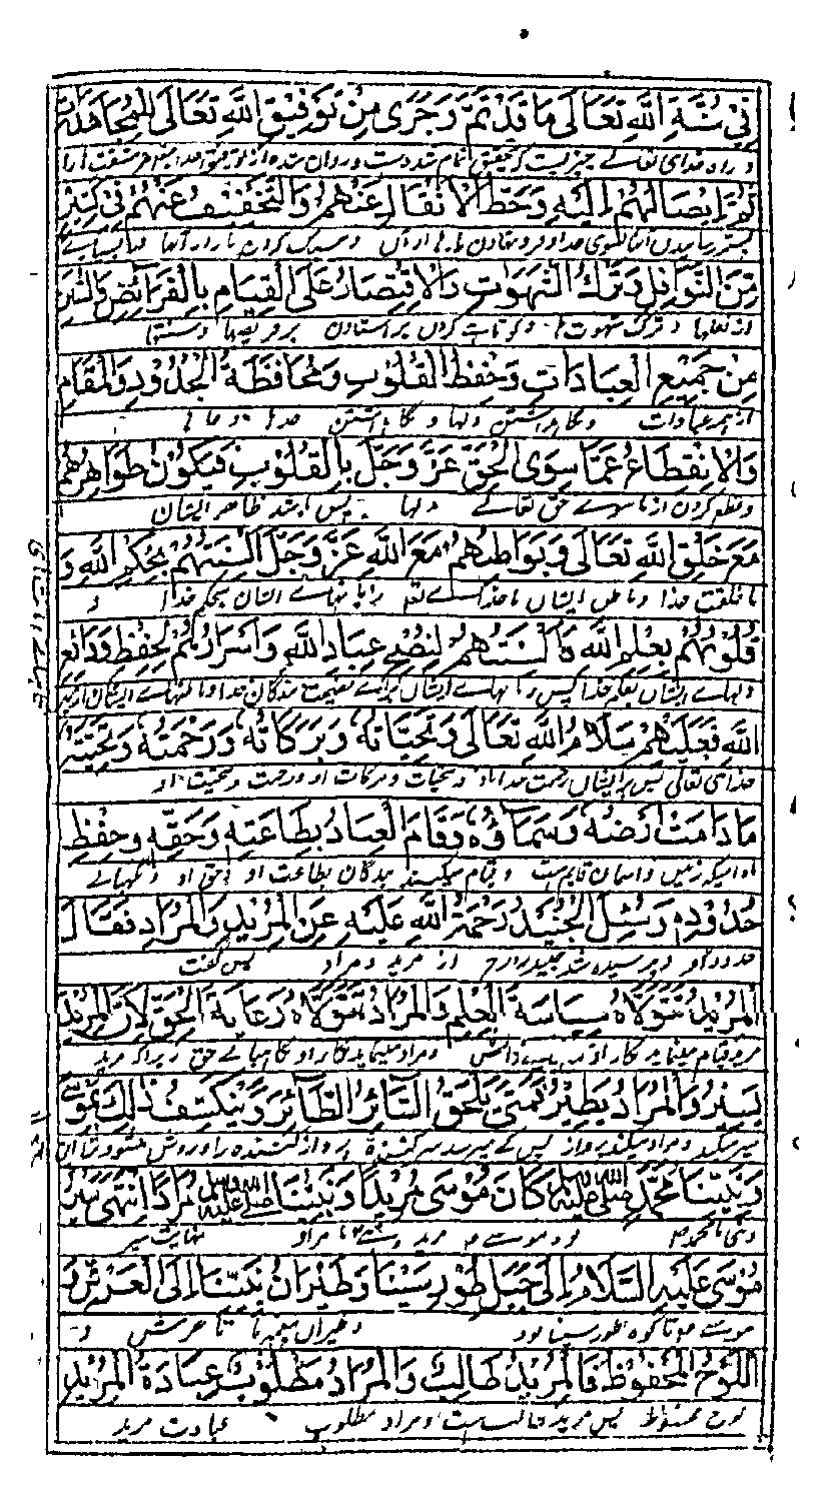 فِيْ سُنَّةِ اللّٰهِ تَعَالَى مَا قَدْ تَمَّ وَجَرَى مِنْ تَوْفِيْقِ اللّٰهِ تَعَالَى لِلْمُجَاهَدَةِ
و راه خدای تعالے چیزیست که تحقیق تمام شده است و روان شده از توفیق خدا
ثُمَّ اِيْصَالُهُمْ اِلَيْهِ وَحَطُّ الْاَثْقَالِ عَنْهُمْ وَالتَّخْفِيْفُ عَنْهُمْ فِيْ كَثِيْرٍ
پستر رسانیدن ایشان بسوی خدا و فرو نهادن بارها از ایشان و سبک کردن بار از آنها
مِّنَ النَّوَافِلِ وَتَرْكُ الشَّهَوَاتِ وَالْاِقْتِصَارُ عَلَى الْقِيَامِ بِالْفَرَائِضِ وَالسُّنَنِ
از نفلها و ترک شهوت ها و کوتاهی کردن بر استادن بر فریضها و سنتها
مِنْ جَمِيْعِ الْعِبَادَاتِ وَحِفْظُ الْقُلُوْبِ وَمُحَافَظَةُ الْحُدُوْدِ وَالْمَقَامِ
از همه عبادات و نگاهداشتن دلها و نگاهداشتن حدها و
وَالْاِنْقِطَاعُ عَمَّا سِوَى الْحَقِّ عَزَّ وَجَلَّ بِالْقُلُوْبِ فَيَكُوْنُ ظَوَاهِرُهُمْ
و قطع کردن از ماسوے حق تعالے دلها پس باشد ظاهر ایشان
مَعَ خَلْقِ اللّٰهِ تَعَالَى وَبَوَاطِنُهُمْ مَعَ اللّٰهِ عَزَّ وَجَلَّ اَلْسِنَتُهُمْ بِحُكْمِ اللّٰهِ وَ
با خلقت خدا و باطن ایشان با خدائے تعالے زبانهاے ایشان بحکم خدا و
قُلُوْبُهُمْ بِعِلْمِ اللّٰهِ فَاَلْسِنَتُهُمْ لِنُصْحِ عِبَادِ اللّٰهِ وَاَسْرَارُهُمْ لِحِفْظِ وَدَائِعِ
دلهاے ایشان بعلم خدا پس زبانهاے ایشان برائے نصیحت بندگان خدا
اللّٰهِ فَعَلَيْهِمْ سَلَامُ اللّٰهِ تَعَالَى وَتَحِيَّاتُهٗ وَبَرَكَاتُهٗ وَرَحْمَتُهٗ وَتَحِيَّتُهٗ
خدای تعالی پس بر ایشان رحمت خدا باد و تحیات و برکات او و رحمت و تحیت او
مَا دَامَتْ اَرْضُهٗ وَسَمَاؤُهٗ وَقَامَ الْعِبَادُ بِطَاعَتِهٖ وَحَقِّهٖ وَحِفْظِ
مادامیکه زمین و آسمان قایم ست و قیام میکنند بندگان بطاعت او و حق او و نگهبانے
حُدُوْدِهٖ وَسُئِلَ الْجُنَيْدُ رَحْمَةُ اللّٰهِ عَلَيْهِ عَنِ الْمُرِيْدِ وَالْمُرَادِ فَقَالَ
حدود او و پرسیده شد جنید را رح از مرید و مراد پس گفت
الْمُرِيْدُ تَتَوَلَّاهُ سِيَاسَةُ الْعِلْمِ وَالْمُرَادُ تَتَوَلَّاهُ رِعَايَةُ الْحَقِّ لِاَنَّ الْمُرِيْدَ
زیرا که مرید
يَسِيْرُ وَالْمُرَادُ يَطِيْرُ فَمَتٰى يَلْحَقُ السَّائِرُ الطَّائِرَ وَيَنْكَشِفُ ذٰلِكَ بِمُوْسٰى
سیر میکند و مراد میکند پرواز پس کے میرسد سیر کننده پرواز کننده را و روشن میشود
وَنَبِيِّنَا مُحَمَّدٍ صَلَّى اللّٰهُ عَلَيْهِ كَانَ مُوْسٰى مُرِيْدًا وَنَبِيُّنَا صَلَّى اللّٰهُ عَلَيْهِ وَسَلَّمَ مُرَادًا اِنْتَهٰى سَيْرُ
و نبی ما محمد م بود موسے م مرید و نبے ما مراد نهایت سیر
مُوْسٰى عَلَيْهِ السَّلَامُ اِلٰى جَبَلِ طُوْرِ سَيْنَا وَطَيْرَانُ نَبِيِّنَا اِلَى الْعَرْشِ وَ
موسے م تا کوه طور سینا بود و طیران پیغمبر ما تا عرش و
اللَّوْحِ الْمَحْفُوْظِ فَالْمُرِيْدُ طَالِبٌ وَالْمُرَادُ مَطْلُوْبٌ عِبَادَةُ الْمُرِيْدِ
لوح محفوظ پس مرید طالب است و مراد مطلوب عبادت مرید